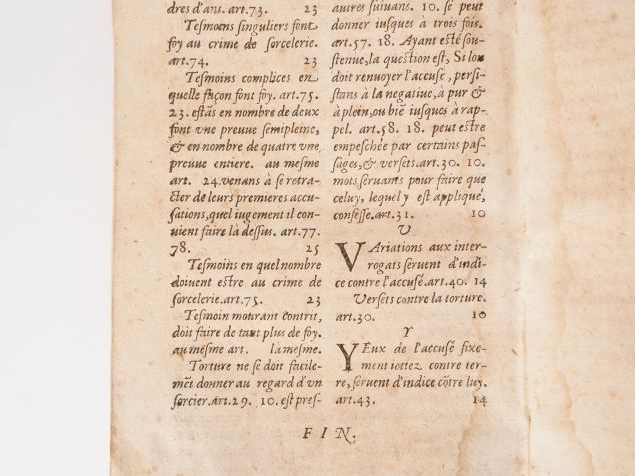 dres d'ans. art. 73. 23
Tesmoins singuliers font
foy au crime de sorcelerie.
art. 74. 23
Tesmoins complices en
quelle façon font foy. art. 75.
23. estãs en nombre de deux
font vne preuue semipleine,
& en nombre de quatre vne
preuue entiere. au mesme
art. 24. venans à se retra-
cter de leurs premieres accu-
sations, quel iugement il con-
uient faire là dessus. art. 77.
78. 25
Tesmoins en quel nombre
doiuent estre au crime de
sorcelerie. art. 75. 23
Tesmoin mourant contrit,
doit faire de tant plus de foy.
au mesme art. la mesme.
Torture ne se doit facile-
mẽt donner au regard d'vn
sorcier. art. 29. 10. est pres-
autres suiuans. 10. se peut
donner iusques à trois fois.
art. 57. 18. Ayant esté sou-
stenue, la question est, Si lon
doit renuoyer l'accusé, persi-
stans à la negatiue, à pur &
à plein, ou biẽ iusques à rap-
pel. art. 58. 18. peut estre
empeschée par certains pas-
sages, & versets. art. 30. 10.
mots seruants pour faire que
celuy, lequel y est appliqué,
confesse. art. 31. 10
V
VAriations aux inter-
rogats seruent d'indi-
ce contre l'accusé. art. 40. 14
Versets contre la torture.
art. 30. 10
Y
YEux de l'accusé fixe-
ment iettez contre ter-
re, seruent d'indice cõtre luy.
art. 43. 14
FIN.